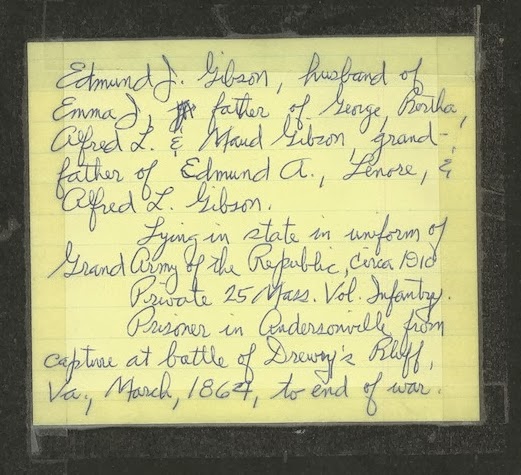 Edmund J. Gibson, husband of
Emma J, father of George, Bertha,
Alfred L. & Maud Gibson, grand-
father of Edmund A., Lenore, &
Alfred L. Gibson.
Lying in state in uniform of
Grand Army of the Republic, circa 1910
Private 25 Mass. Vol. Infantry.
Prisoner in Andersonville from
capture at battle of Drewry's Bluff,
Va., March, 1864, to end of war.